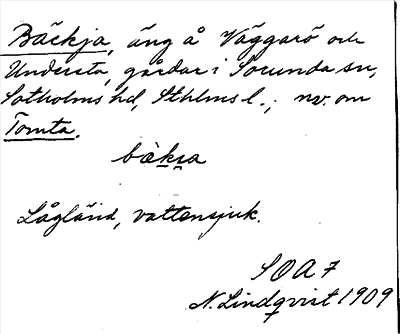 Bäckja, äng å Väggarö och
Understa, gårdar i Sorunda sn,
Sotholms hd, Sthlms l.; nv. om
Tomta.
bäkja
Lågländ, vattensjuk.
SOA 7
N. Lindqvist 1909